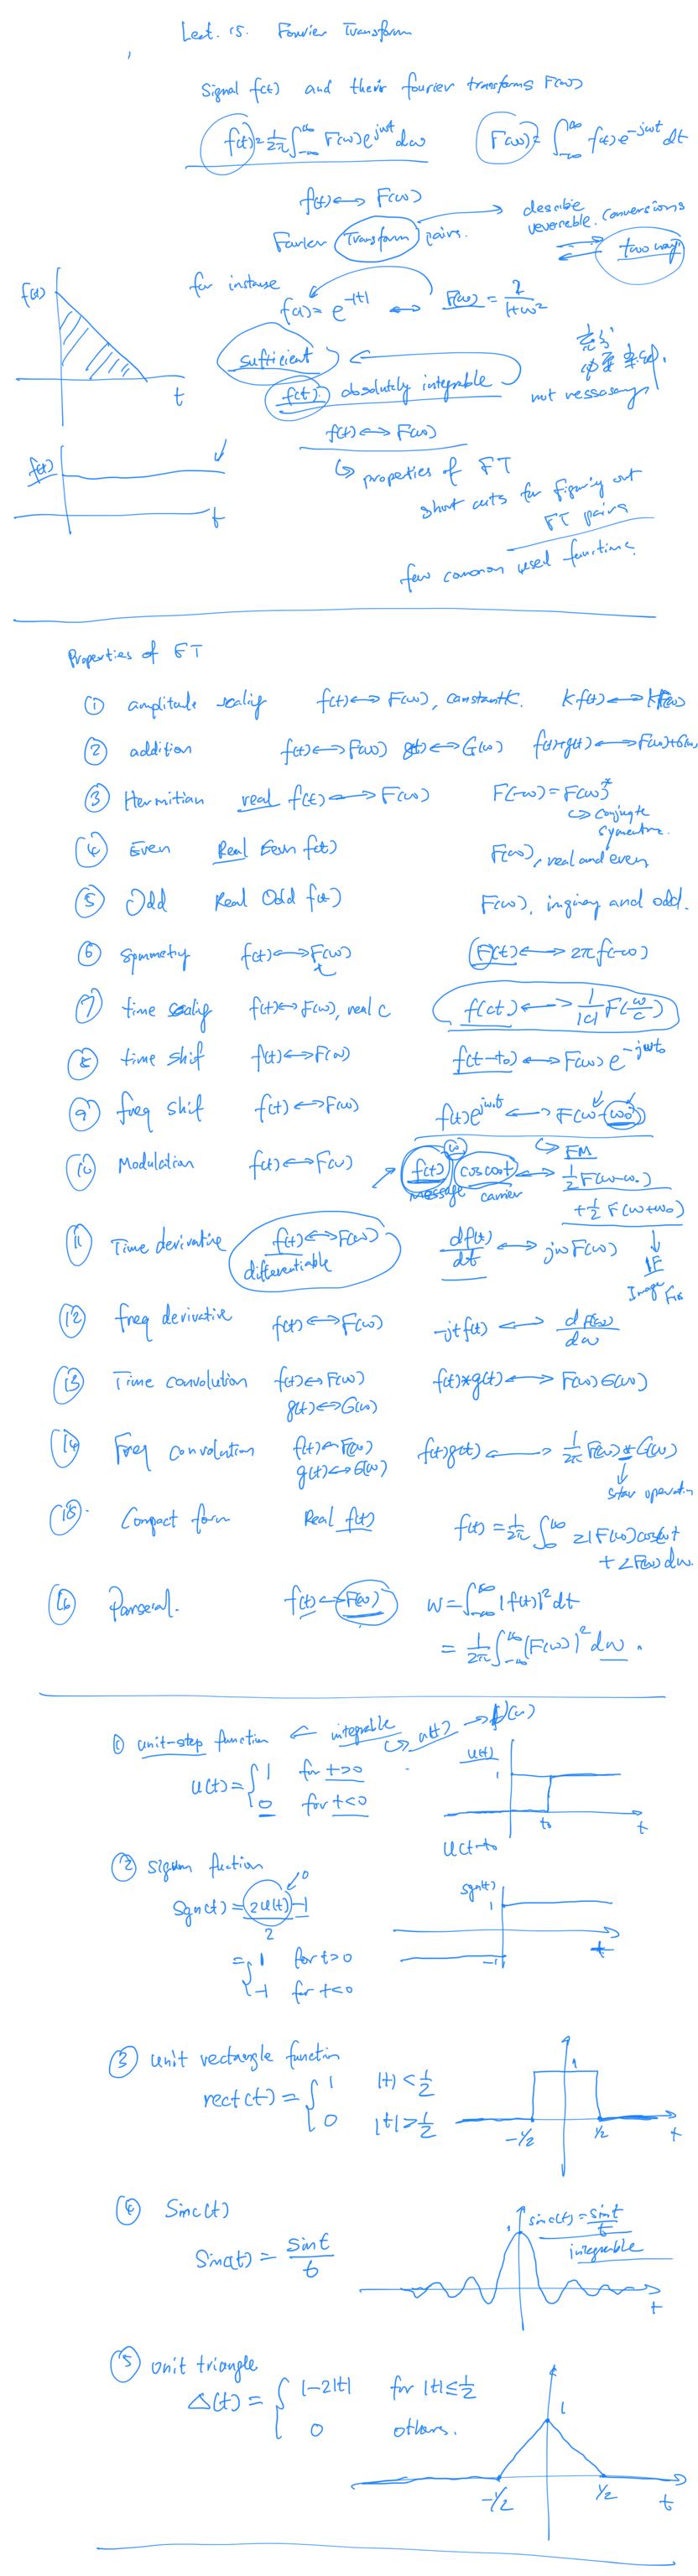 Lect. 15. Fourier Transform
Signal f(t) and their fourier transforms F(ω)
f(t) = 1/2π ∫_{-∞}^{∞} F(ω)e^{jωt}dω    F(ω) = ∫_{-∞}^{∞} f(t)e^{-jωt}dt
f(t) ↔ F(ω)
Fourier Transform pairs.
describe
reversible conversions
two way
for instance
f(t) = e^{-|t|} ↔ F(ω) = 2/(1+ω²)
f(t)
t
sufficient
f(t) absolutely integrable
not
f(t) ↔ F(ω)
properties of FT
short cuts for figuring out
FT pairs
few common used functions.
f(t)
t
Properties of FT
① amplitude scaling f(t) ↔ F(ω), constant K. Kf(t) ↔ KF(ω)
② addition f(t) ↔ F(ω) g(t) ↔ G(ω) f(t)+g(t) ↔ F(ω)+G(ω)
③ Hermitian real f(t) ↔ F(ω) F(-ω) = F(ω)*
conjugate
④ Even Real Even f(t) F(ω), real and even
⑤ Odd Real Odd f(t) F(ω), and odd.
⑥ Symmetry f(t) ↔ F(ω) F(t) ↔ 2πf(-ω)
⑦ time scaling f(t) ↔ F(ω), real c f(ct) ↔ 1/|c| F(ω/c)
⑧ time shif f(t) ↔ F(ω) f(t-t₀) ↔ F(ω)e^{-jωt₀}
⑨ freq shif f(t) ↔ F(ω) f(t)e^{jω₀t} ↔ F(ω-ω₀)
FM
⑩ Modulation f(t) ↔ F(ω) f(t) cosω₀t ↔ 1/2 F(ω-ω₀)
message carrier +1/2 F(ω+ω₀)
⑪ Time derivative f(t) ↔ F(ω) df(t)/dt ↔ jωF(ω)
differentiable
IF
Image
⑫ freq derivative f(t) ↔ F(ω) -jtf(t) ↔ dF(ω)/dω
⑬ Time convolution f(t) ↔ F(ω) f(t)*g(t) ↔ F(ω)G(ω)
g(t) ↔ G(ω)
⑭ Freq convolution f(t) ↔ F(ω) f(t)g(t) ↔ 1/2π F(ω)*G(ω)
g(t) ↔ G(ω)
star operation
⑮ Compact form Real f(t) f(t) = 1/2π ∫_{0}^{∞} 2|F(ω)|cos(ωt
+∠F(ω)dω.
⑯ Parseval. f(t) ↔ F(ω) W = ∫_{-∞}^{∞} |f(t)|²dt
= 1/2π ∫_{-∞}^{∞} |F(ω)|²dω.
① unit-step function ← integrable u(t)
u(t) = { 1 for t>0
0 for t<0
u(t)
1
t₀
t
u(t-t₀
② signum fuction
sgn(t) = 2u(t)-1
0
2
= { 1 for t>0
-1 for t<0
sgn(t)
1
-1
t
③ unit rectangle function
rect(t) = { 1 |t|<1/2
0 |t|>1/2
1
-1/2 1/2 t
④ Sinc(t)
Sinc(t) = sint/t
sinc(t) = sint/t
integrable
t
⑤ unit triangle
Δ(t) = { 1-2|t| for |t|≤1/2
0 others.
1
-1/2 1/2 t